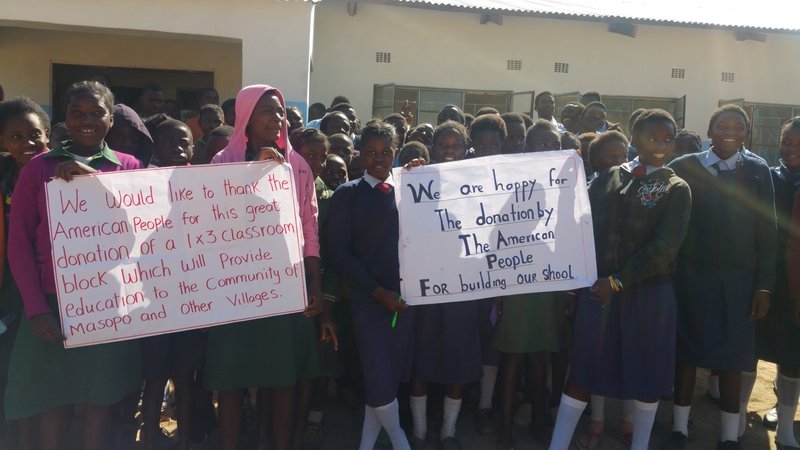 We would like to thank the
American People for this great
donation of a 1x3 classroom
block Which Will Provide
education to the Community of
Masopo and Other Villages.
We are happy for
The donation by
The American
People
For building our school.